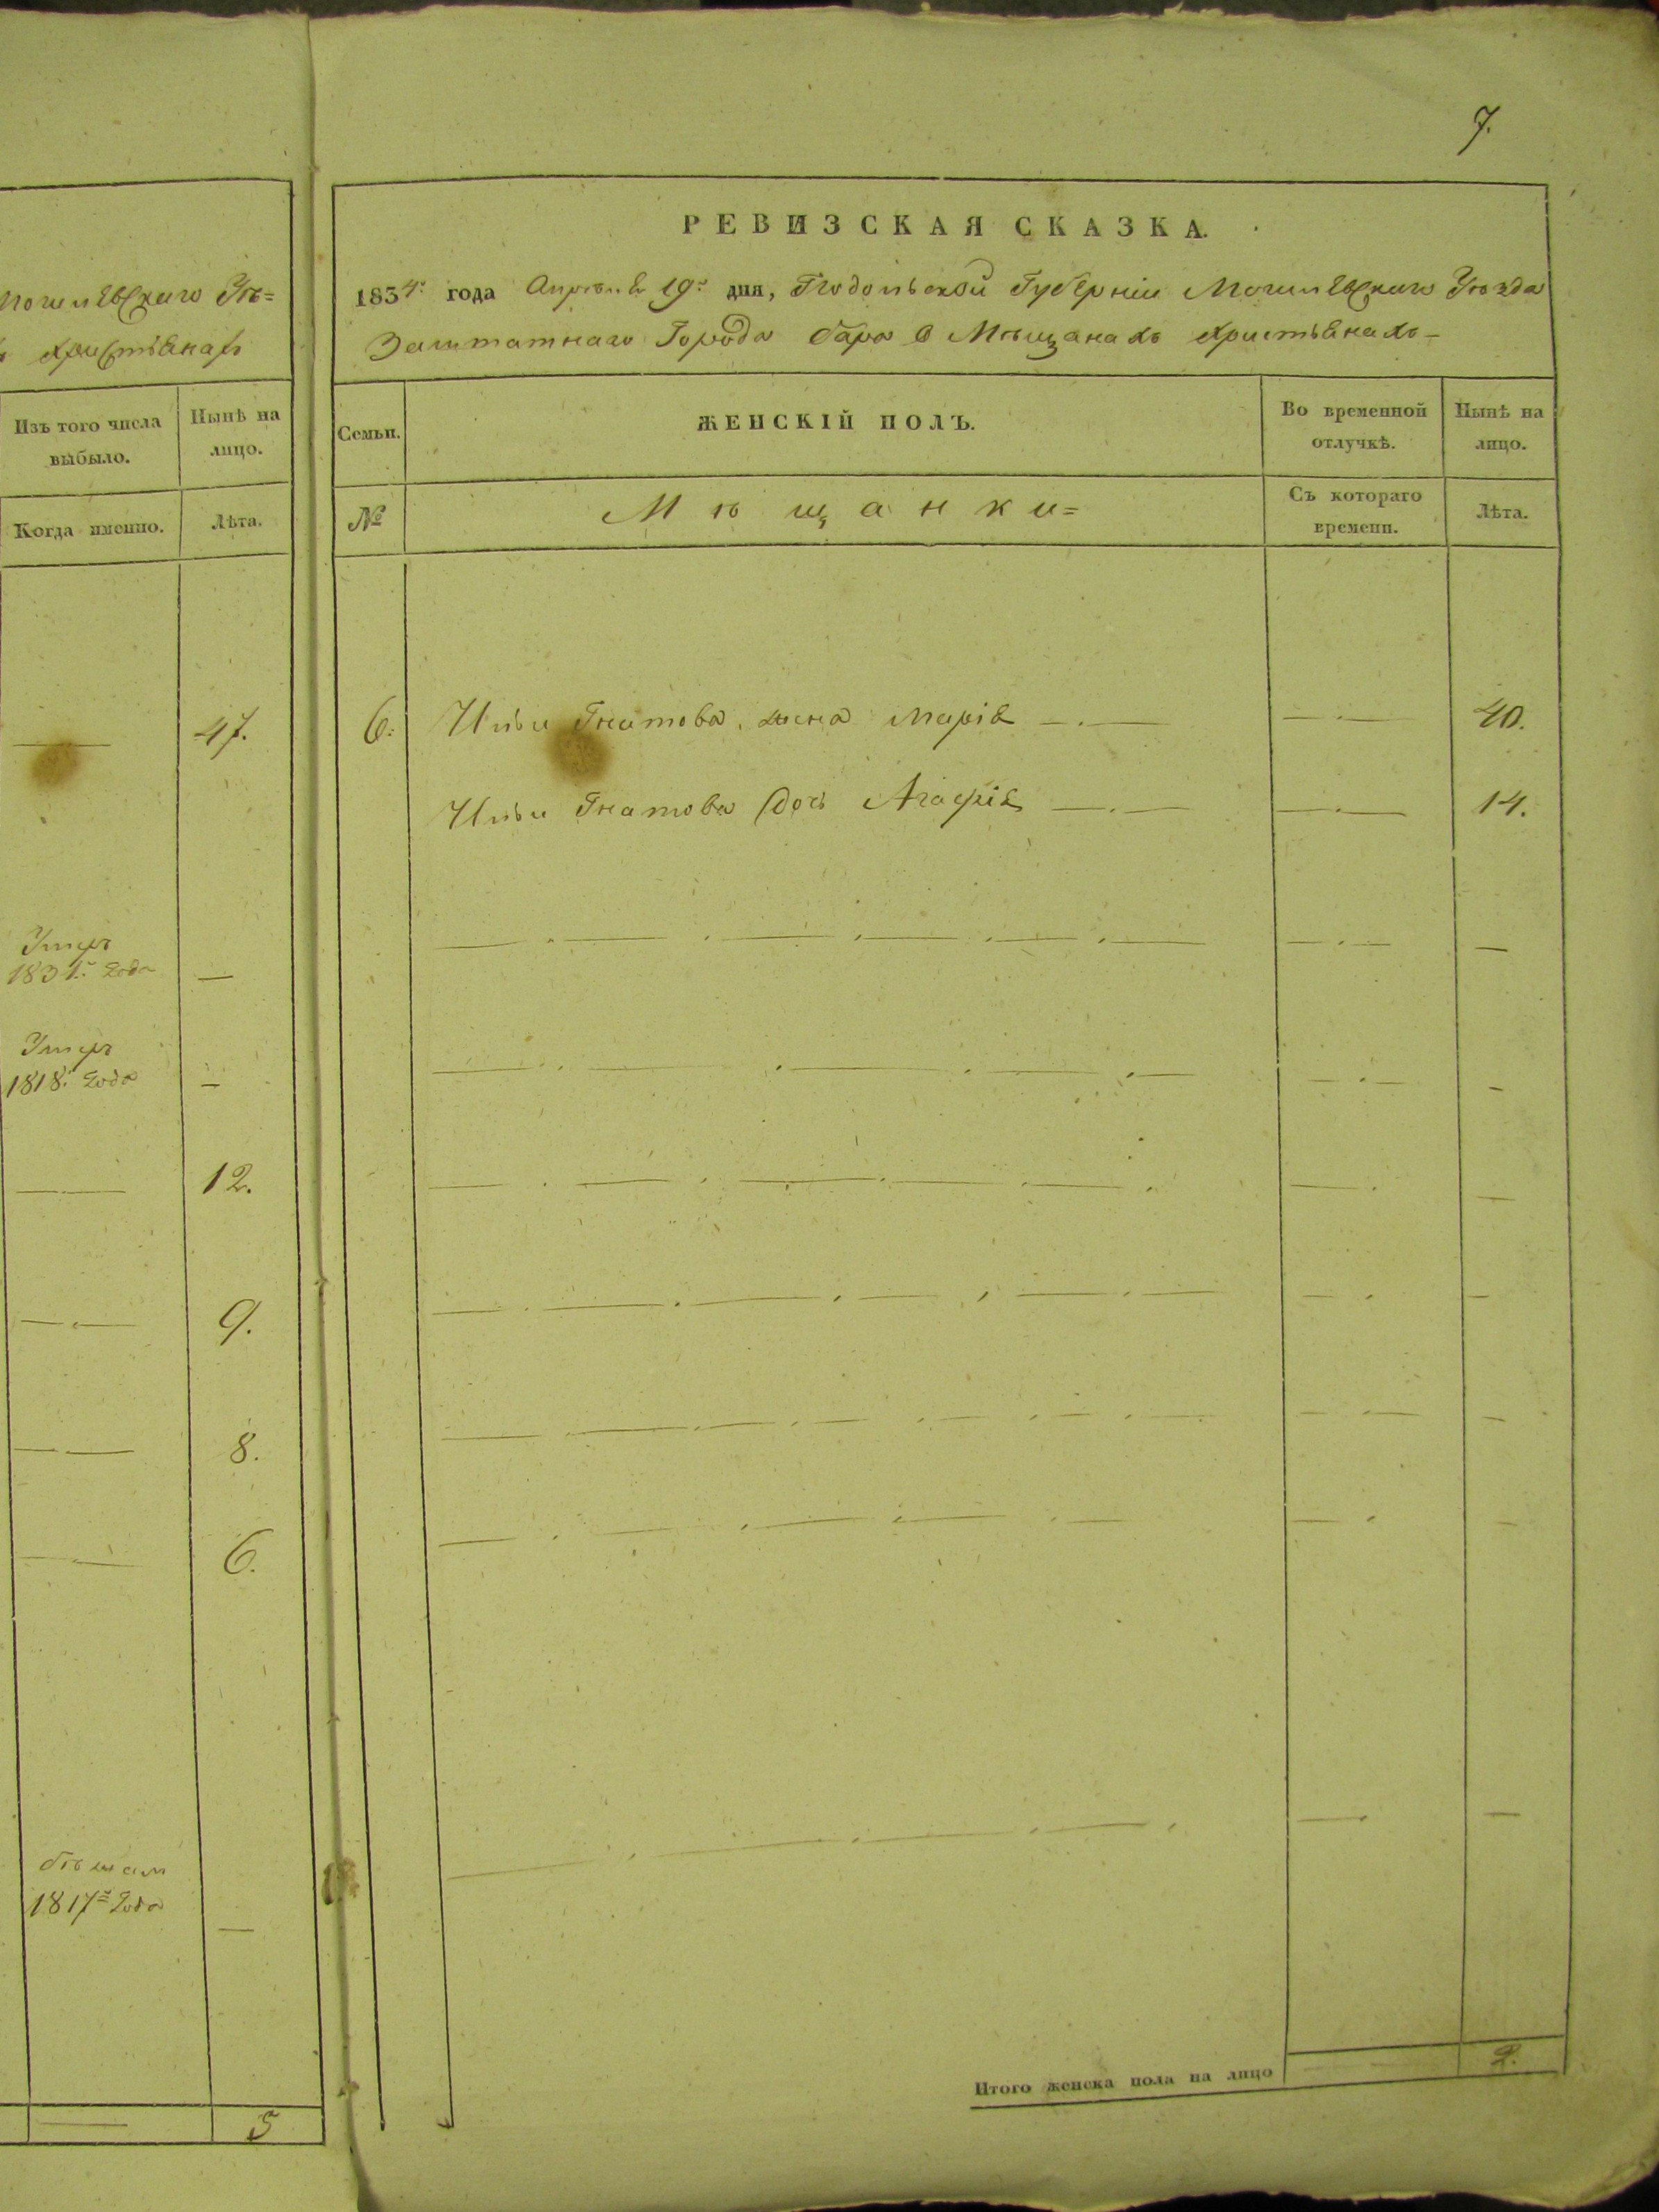 Могилевскаго Уѣ=
христіянахъ
Изъ того числа
выбыло.
Нынѣ на
лицо.
Когда именно.
Лѣта.
47.
Умеръ
1831: года
Умеръ
1818: года
12.
9.
8.
6.
1817 года
5
7.
РЕВИЗСКАЯ СКАЗКА.
1834: года Апрѣля 19: дня, Подольской Губерніи Могилевскаго Уѣзда
Заштатнаго Города Бара о Мѣщанахъ христіянахъ
Семьи.
ЖЕНСКІЙ ПОЛЪ.
Во временной
отлучкѣ.
Нынѣ на
лицо.
№
Мѣщанки=
Съ котораго
времени.
Лѣта.
6: Ильи Гнатова жена Марія 40.
Ильи Гнатова дочь Агафія 14.
Итого женска пола на лицо 2.